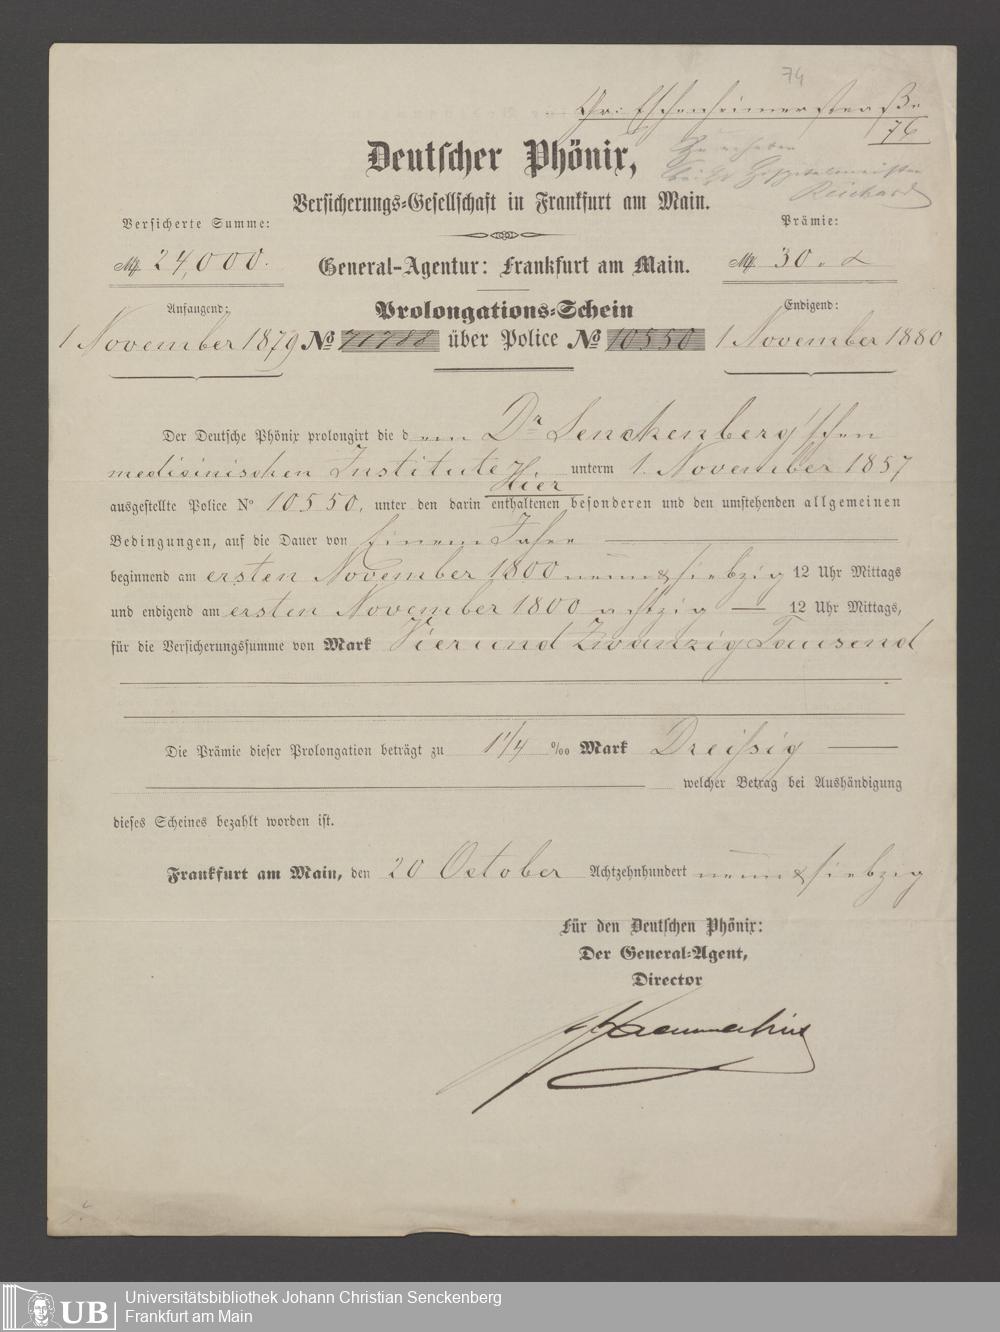 74
Gr: Eschenheimerstraße
76
Zu erheben
bei Hospitalmeister
Reichard
Deutscher Phönix,
Versicherungs-Gesellschaft in Frankfurt am Main.
Versicherte Summe:
Prämie:
M 24,000.
General-Agentur: Frankfurt am Main.
M 30.
Anfangend:
Prolongations-Schein
Endigend:
1 November 1879 No 71788 über Police No 10550 1 November 1880
Der Deutsche Phönix prolongirt die dem Dr Senckenberg'schen
medicinischen Institute Hier unterm 1. November 1857
ausgestellte Police No 10550, unter den darin enthaltenen besonderen und den umstehenden allgemeinen
Bedingungen, auf die Dauer von Einem Jahre
beginnend am ersten November 1800 neun & siebzig 12 Uhr Mittags
und endigend am ersten November 1800 achtzig — 12 Uhr Mittags,
für die Versicherungssumme von Mark Vier und Zwanzig Tausend
Die Prämie dieser Prolongation beträgt zu 1 1/4 ‰ Mark Dreißig —
welcher Betrag bei Aushändigung
dieses Scheines bezahlt worden ist.
Frankfurt am Main, den 20 October Achtzehnhundert neun & siebzig
Für den Deutschen Phönix:
Der General-Agent,
Director
UB Universitätsbibliothek Johann Christian Senckenberg
Frankfurt am Main